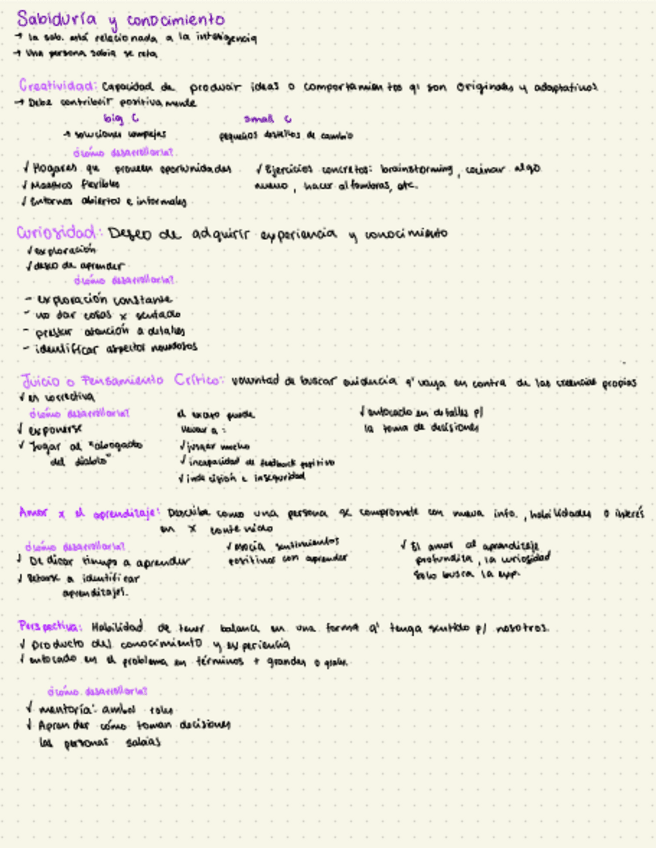 Sabiduría y conocimiento
→ la sab. está relacionada a la inteligencia
→ Una persona sabia se reta
Creatividad: Capacidad de producir ideas o comportamientos q' son originales y adaptativos
→ Debe contribuir positivamente
big C
small c
→ soluciones complejas
pequeños destellos de cambio
¿cómo desarrollarla?
✓ Hogares que proveen oportunidades
✓ Maestros flexibles
✓ Entornos abiertos e informales
✓ Ejercicios concretos: brainstorming, cocinar algo
nuevo, hacer alfombras, etc.
Curiosidad: Deseo de adquirir experiencia y conocimiento
✓ exploración
✓ deseo de aprender
¿cómo desarrollarla?
- exploración constante
- no dar cosas x sentado
- prestar atención a detalles
- identificar aspectos novedosos
Juicio o Pensamiento Crítico: voluntad de buscar evidencia q' vaya en contra de las creencias propias
✓ es correctiva
¿cómo desarrollarla?
✓ exponerse
✓ Jugar al "abogado
del diablo"
el exceso puede
llevar a:
✓ juzgar mucho
✓ incapacidad de feedback positivo
✓ indecisión e inseguridad
✓ enfocado en detalles p/
la toma de decisiones
Amor x el aprendizaje: Describe como una persona se compromete con nueva info., habilidades o interés
en x contenido
¿cómo desarrollarla?
✓ Dedicar tiempo a aprender
✓ Retarse a identificar
aprendizajes.
✓ asocia sentimientos
positivos con aprender
✓ El amor al aprendizaje
profundiza, la curiosidad
solo busca la exp.
Perspectiva: Habilidad de tener balance en una forma q' tenga sentido p/ nosotros.
✓ producto del conocimiento y experiencia
✓ enfocado en el problema en términos + grandes o
¿cómo desarrollarla?
✓ mentoría: ambos roles
✓ Aprender cómo toman decisiones
las personas sabias